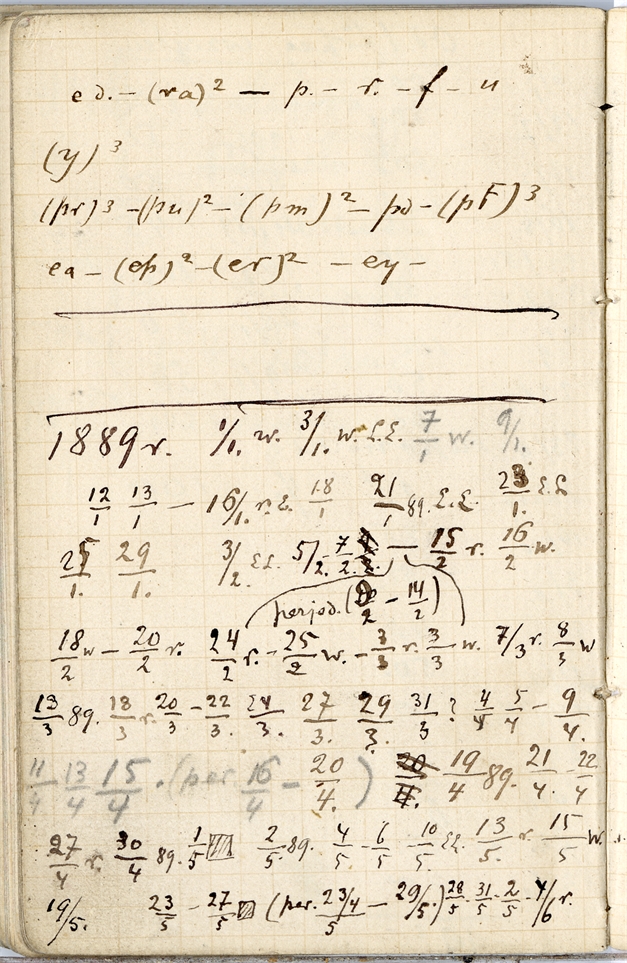 ed. – (ra)² — p. – r. – f – u
(y)³
(pr)³ – (pu)² – (pm)² – pd – (pF)³
ea – (ep)² – (er)² – ey –
1889 r. 1/1. w. 3/1. w. L.E. 7/1 w. 9/1.
12/1 13/1 — 16/1. r. E. 18/1 21/1 89. E.E. 23/1. E.L
25/1. 29/1. 3/2. EL. 5/2. 7/2. — 15/2 r. 16/2 w.
period. (10/2 – 14/2)
18/2 w – 20/2 r. 24/2 r. – 25/2 w. – 3/3 r. 3/3 w. 7/3 r. 8/3 w
13/3 89. 18/3 r. 20/3 – 22/3. 24/3. 27/3. 29/3. 31/3 ? 4/4 5/4 – 9/4.
11/4 13/4 15/4. (per 16/4 – 20/4.) 20/4. 19/4 89. 21/4. 22/4
27/4 r. 30/4 89. 1/5 2/5. 89. 4/5. 6/5 – 10/5 EL. 13/5. r. 15/5 w.
19/5. 23/5 – 27/5 (per. 23/5 – 29/5.) 28/5 – 31/5 – 2/5 – 4/6 r.